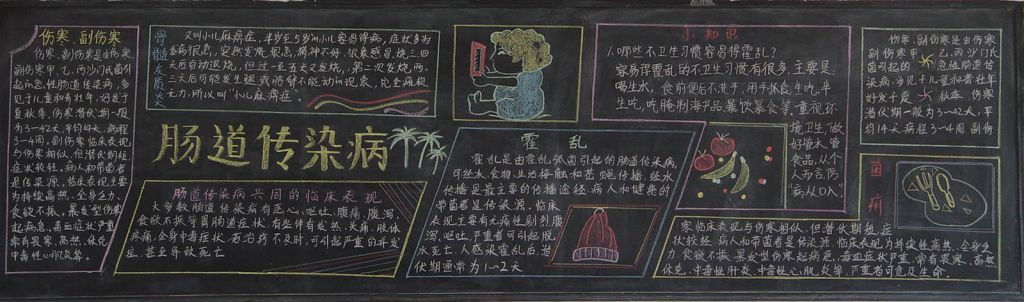 伤寒、副伤寒
伤寒、副伤寒是由伤寒、
副伤寒甲、乙、丙沙门氏菌引
起的急性肠道传染病,多
见于儿童和青壮年,好发于
夏秋季,伤寒潜伏期一般
为3~42天,平均14天,病程
3~4周。副伤寒临床表现
与伤寒相似,但潜伏期短,
症状较轻,病人和带菌者
是传染源,临床表现主要
为持续高热、全身乏力、
食欲不振,暴发型伤寒
起病急,毒血症状严重,
常有畏寒、高热、休克、
中毒性心肌炎等。
骨髓灰质炎
又叫小儿麻痹症,半岁至5岁小儿容易得病,症状多为
发病很急,突然发烧,很急,精神不好,很象感冒,三四
天后自动退烧,但过一至五天又发烧,第二次发烧,两、
三天后可能发生腿或胳臂不能动的现象,完全瘫痪
无力,所以叫“小儿麻痹症”。
肠道传染病
肠道传染病共同的临床表现
大多数肠道传染病有恶心、呕吐、腹痛、腹泻、
食欲不振等胃肠道症状,有些伴有发热、头痛、肢体
疼痛,全身中毒症状,若治疗不及时,可引起严重的并发
症,甚至导致死亡
霍乱
霍乱是由霍乱弧菌引起的肠道传染病,
可经水、食物、生活接触和苍蝇传播,经水
传播是最主要的传播途径,病人和健康的
带菌者是传染源,临床
表现主要有无痛性剧烈腹
泻、呕吐,严重者可引起脱
水死亡,人感染霍乱后,潜
伏期通常为1~2天
小知识
1.哪些不卫生习惯容易得霍乱?
容易得霍乱的不卫生习惯有很多,主要是:
喝生水,食前便后不洗手,用手抓食生吃,半
生吃,吃腌制海产品,暴饮暴食等,重视环
境卫生,做
好管水、管
食品,从个
人而言防
“病从口入”
伤寒、副伤寒是由伤寒、
副伤寒甲、乙、丙沙门氏
菌引起的急性肠道传
染病,多见于儿童和青壮年
好发于夏秋季,伤寒
潜伏期一般为3~42天,平
均14天,病程3~4周,副伤
菌痢
寒临床表现与伤寒相似,但潜伏期短,症
状较轻,病人和带菌者是传染源,临床表现为持续性高热、全身乏
力、食欲不振,暴发型伤寒起病急,毒血症状严重,常有畏寒、高热、
休克、中毒性肝炎、中毒性心肌炎等,严重者可危及生命.